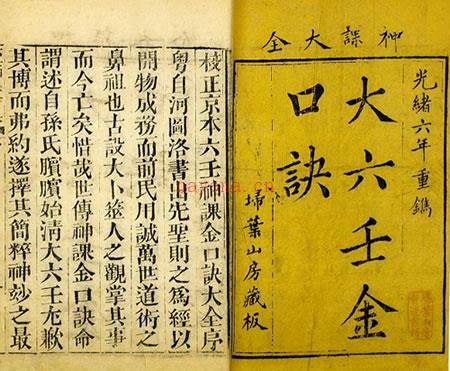 神課大全
光緒六年重鐫
大六壬金
口訣
埽葉山房藏板
校正京本六壬神課金口訣大全序
粵自河圖洛書出先聖則之爲經以
開物成務而前民用誠萬世道術之
鼻祖也古設大卜筮人之觀掌其事
而今亡矣惜哉世傳神課金口訣命
謂述自孫氏臏臏始清大六壬尨歉
其博而弗約遂擇其簡粹神玅之最